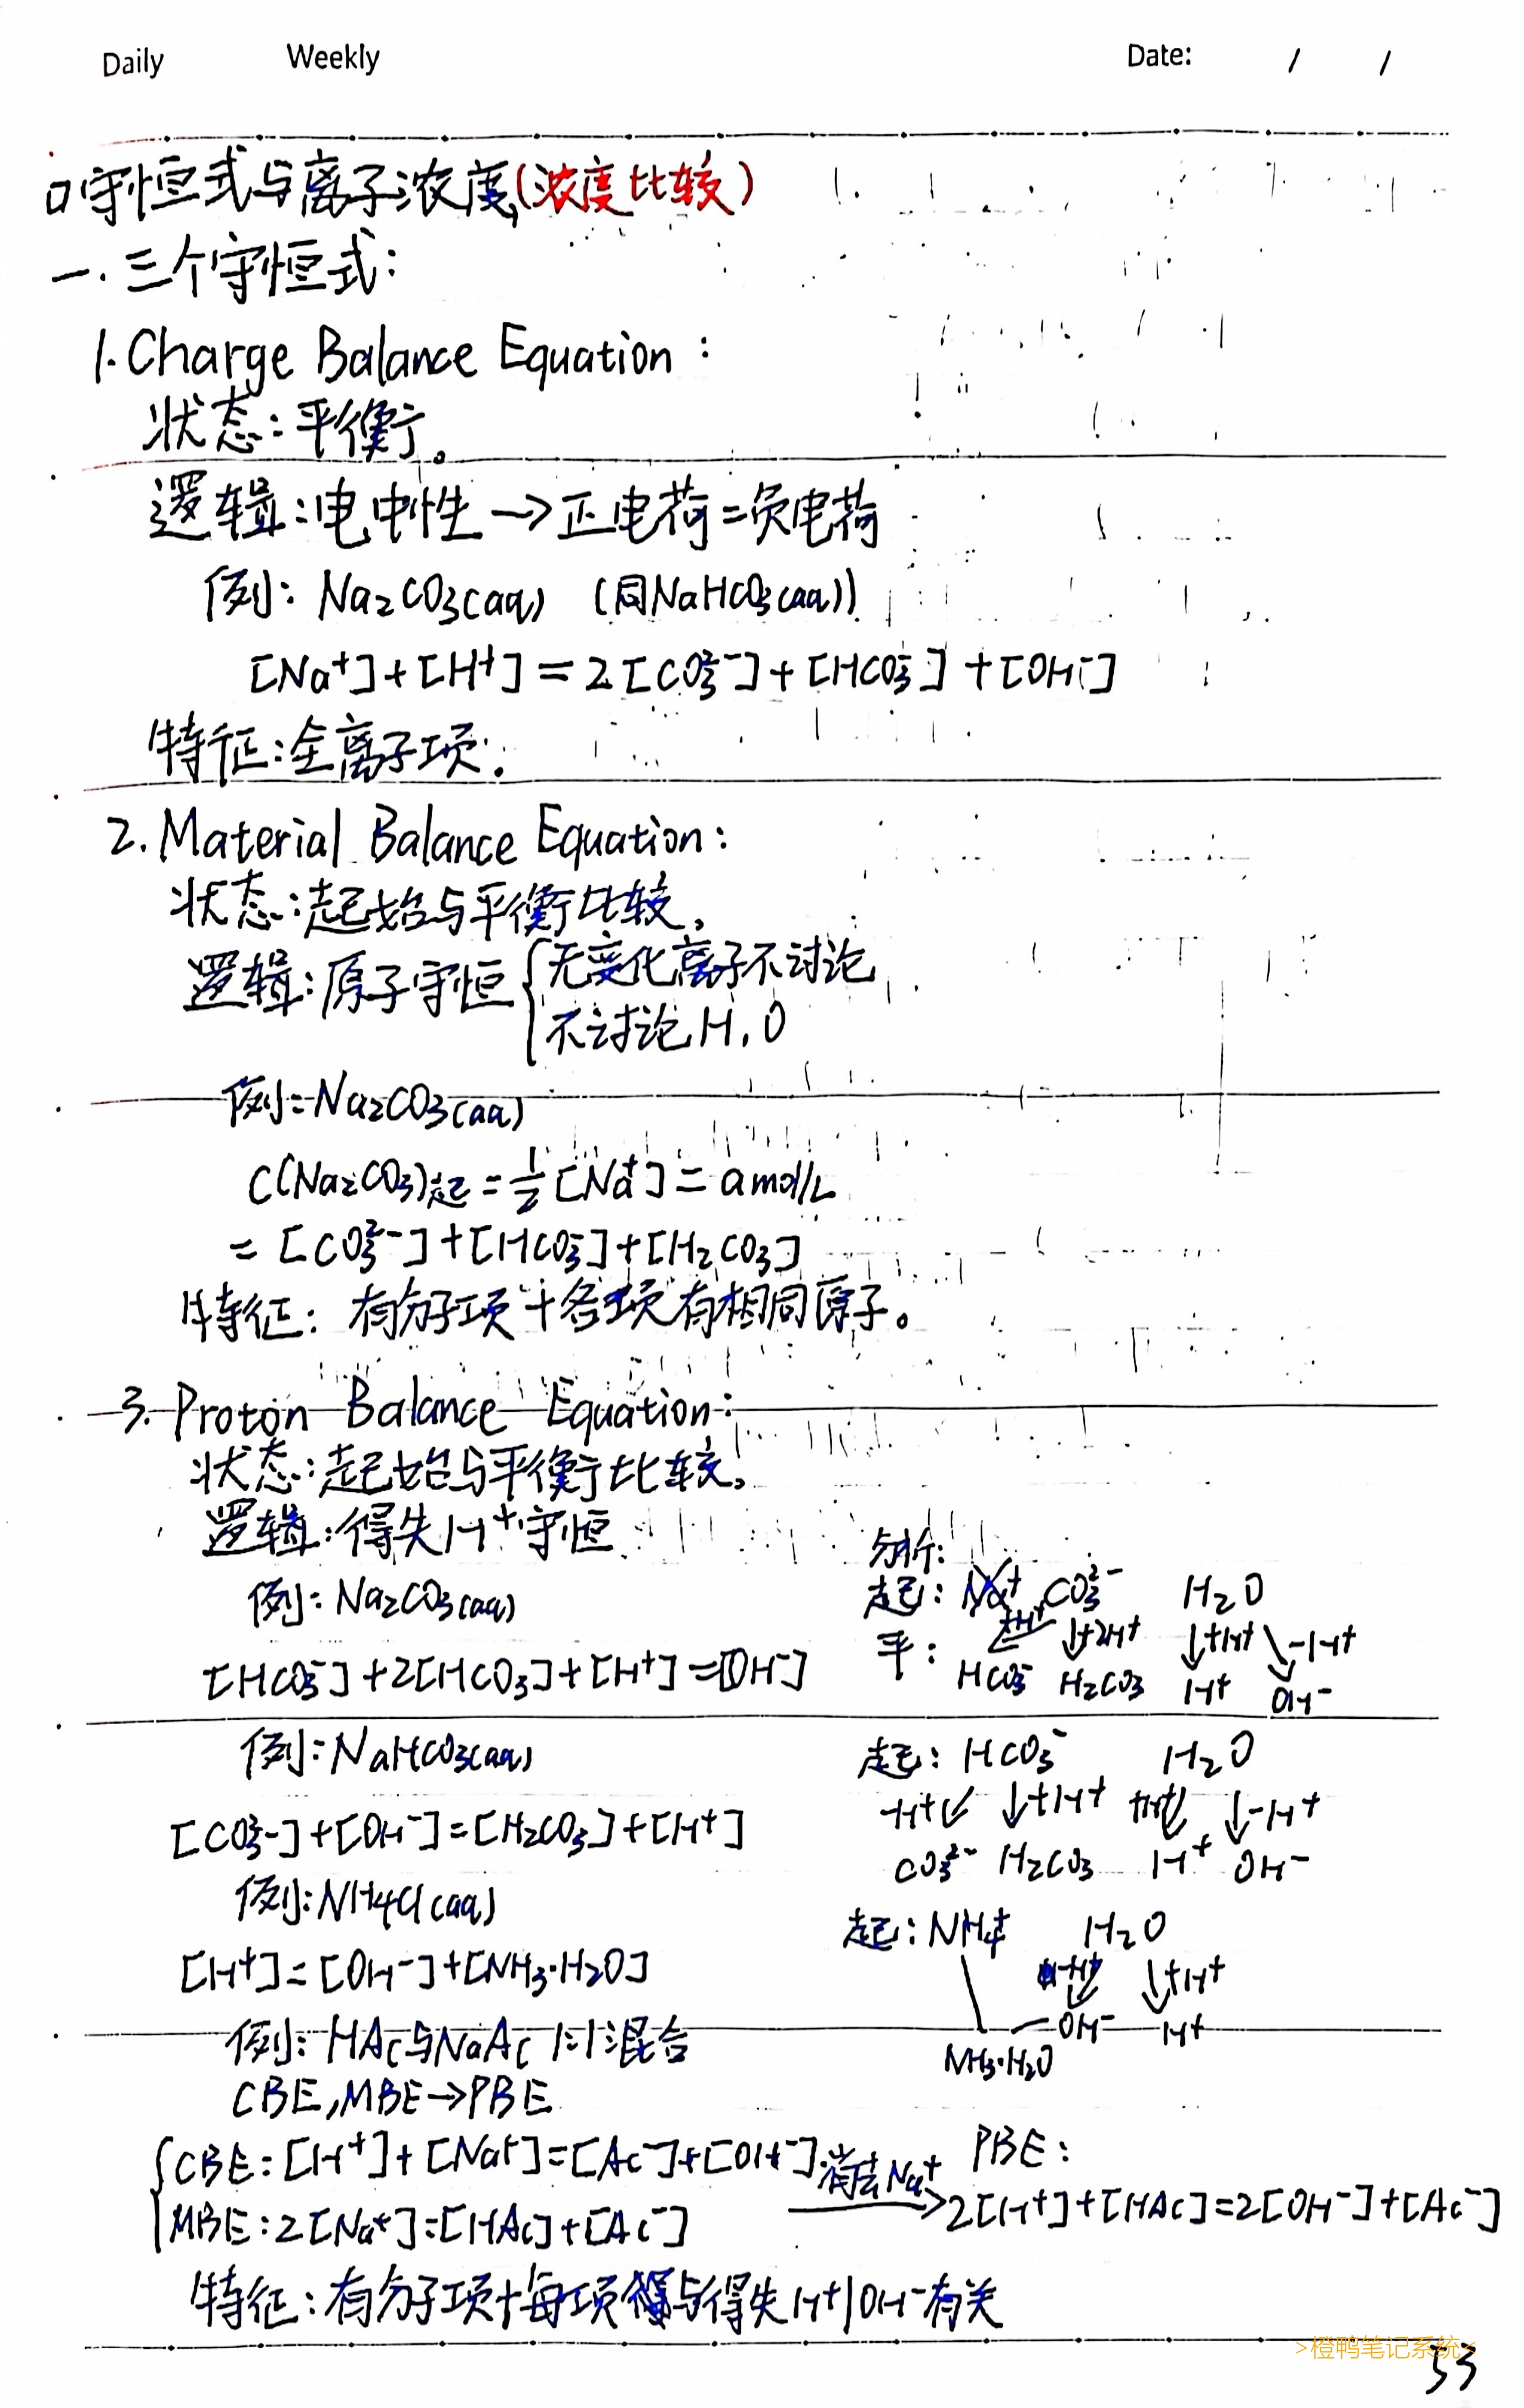 Daily Weekly Date: / /
口守恒式与离子浓度(浓度比较)
一.三个守恒式:
1.Charge Balance Equation:
状态:平衡。
逻辑:电中性→正电荷=负电荷
例:Na₂CO₃(aq) (同NaHCO₃(aq))
[Na⁺]+[H⁺]=2[CO₃²⁻]+[HCO₃⁻]+[OH⁻]
特征:全离子项.
2.Material Balance Equation:
状态:起始与平衡比较。
逻辑:原子守恒{无变化离子不讨论
不讨论H,O
例:Na₂CO₃(aq)
C(Na₂CO₃)起=½[Na⁺]=amol/L
=[CO₃²⁻]+[HCO₃⁻]+[H₂CO₃]
特征:有分子项+各项有相同原子。
3.Proton Balance Equation:
状态:起始与平衡比较。
逻辑:得失H⁺守恒
例:Na₂CO₃(aq)
[HCO₃⁻]+2[HCO₃]+[H⁺]=[OH⁻]
分析:
起:Na⁺ CO₃²⁻ H₂O
平: +H⁺↙ ↓+2H⁺ ↓+H⁺ ↘-H⁺
HCO₃⁻ H₂CO₃ H⁺ OH⁻
例:NaHCO₃(aq)
[CO₃²⁻]+[OH⁻]=[H₂CO₃]+[H⁺]
起:HCO₃⁻ H₂O
-H⁺↙ ↓+H⁺ +H⁺↙ ↓-H⁺
CO₃²⁻ H₂CO₃ H⁺ OH⁻
例:NH₄Cl(aq)
[H⁺]=[OH⁻]+[NH₃·H₂O]
起:NH₄⁺ H₂O
-H⁺↙ ↓+H⁺
OH⁻ H⁺
NH₃·H₂O
例:HAc与NaAc 1:1混合
CBE,MBE→PBE
{CBE:[H⁺]+[Na⁺]=[Ac⁻]+[OH⁻]
MBE:2[Na⁺]=[HAc]+[Ac⁻]
消去Na⁺→
PBE:
2[H⁺]+[HAc]=2[OH⁻]+[Ac⁻]
特征:有分子项+每项与得失H⁺/OH⁻有关
>橙鸭笔记系统<
53